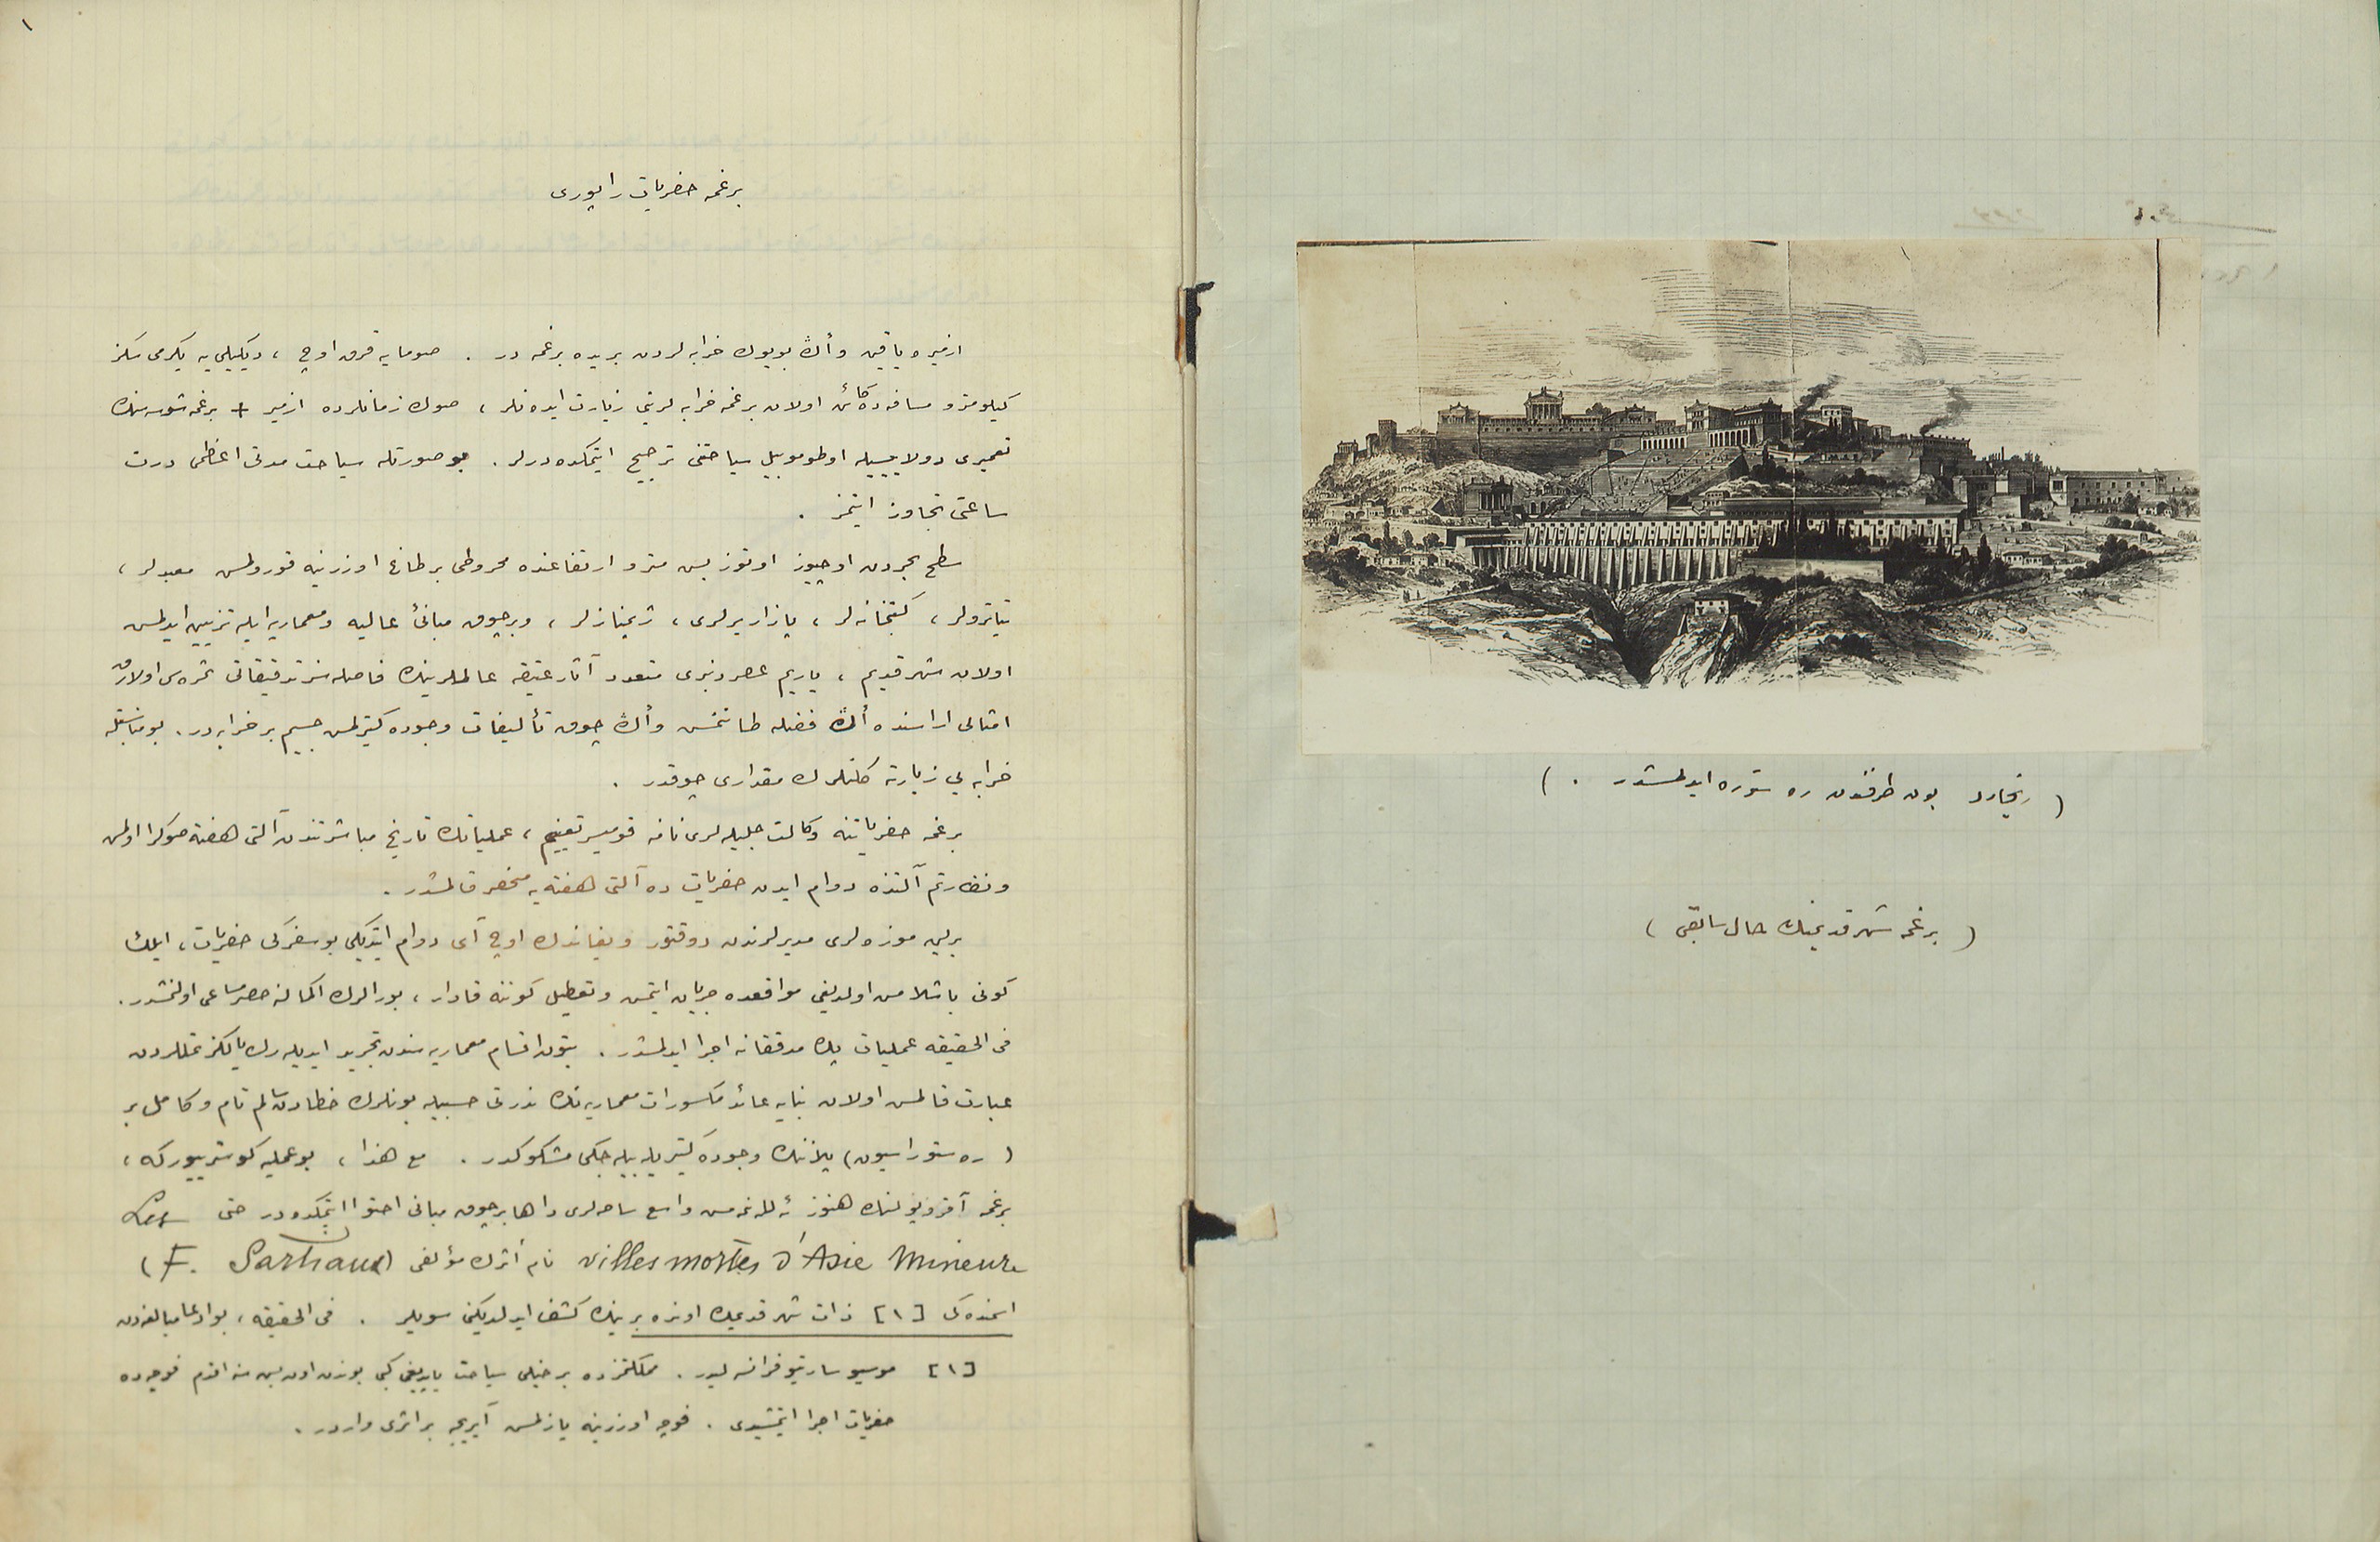 ١
برغمه حفریات راپوری
ازمیره یاقین وأڭ بویوك خرابه لردن بریده برغمه در . صومایه قرق اوچ ، دیكیلی یه یكرمی سكز
كیلومترو مسافه ده كائن اولان برغمه خرابه لرینی زیارت ایده نلر ، صوك زمانلرده ازمیر + برغمه شوسه سنك
تعمیری دولاییسیله اوطوموبیل سیاحتنی ترجیح ایتمكده درلر . بو صورتله سیاحت مدتی اعظمی درت
ساعتی تجاوز ایتمز .
سطح بحردن اوچیوز اوتوز بش مترو ارتفاعنده مخروطی بر طاغ اوزرینه قورولمش معبدلر ،
تیاترولر ، كتبخانه لر ، پازار یرلری ، ژیمنازلر ، وبرچوق مبانئ عالیه ومعماریه ایله تزیین ایدلمش
اولان شهر قدیم ، یاریم عصردنبری متعدد آثار عتیقه عالملرینك فاصله سز تدقیقاتی ثمره سی اولارق
امثالی اراسنده أڭ فضله طاننمش وأڭ چوق تألیفات وجوده كتیرلمش جسیم بر خرابه در . بو مناسبتله
خرابه یی زیارته كلنلرك مقداری چوقدر .
برغمه حفریاتنه وكالت جلیله لری نامنه قومیسر تعیینم ، عملیاتك تاریخ مباشرتندن آلتی هفته صوكرا اولمش
ونظارتم آلتنده دوام ایدن حفریات ده آلتی هفته یه منحصر قالمشدر .
برلین موزه لری مدیرلرندن دوقتور ویغاندك اوچ آی دوام ایتدیكی بو سفركی حفریات ، ایلك
كونی باشلامش اولدیغی مواقعده جریان ایتمش وتعطیل كوننه قادار ، بورالرك اكمالنه حصر مساعی اولنمشدر .
فی الحقیقه عملیات پك مدققانه اجرا ایدلمشدر . بتون اقسام معماریه سندن تجرید ایدیله رك یالكز تمللردن
عبارت قالمش اولان بنایه عائد مكسورات معماریه نك ندرتی حسبیله بونلرك خطادن سالم تام وكامل بر
( ره ستوراسیون ) پلاننك وجوده كتیریله بیله جكی مشكوكدر . مع هذا ، بو عملیه كوسترییوركه ،
برغمه آقروپولنك هنوز ئه لله نمه مش واسع ساحه لری داها برچوق مبانی احتوا ایتمكده در حتی Les
villes mortes d'Asie Mineure نام أثرك مؤلفی (F. Sartiaux)
اسمنده كی [١] ذات شهر قدیمك اونده برینك كشف ایدلدیكنی سویلر . فی الحقیقه ، بو ادعا مبالغه دن
[١] موسیو سارتیو فرانسه لیدر . مملكتمزده بر خیلی سیاحت یاپدیغی كبی بوندن اون بش سنه اقدم فوچه ده
حفریات اجرا ایتمشیدی . فوچه اوزرینه یازلمش آیریجه بر اثری واردر .
( ریچارد بون طرفندن ره ستوره ایدلمشدر . )
( برغمه شهر قدیمنك حال سابقی )